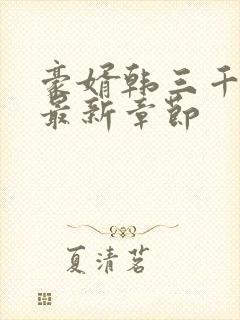 豪婿韩三千
最新章节
夏清茗